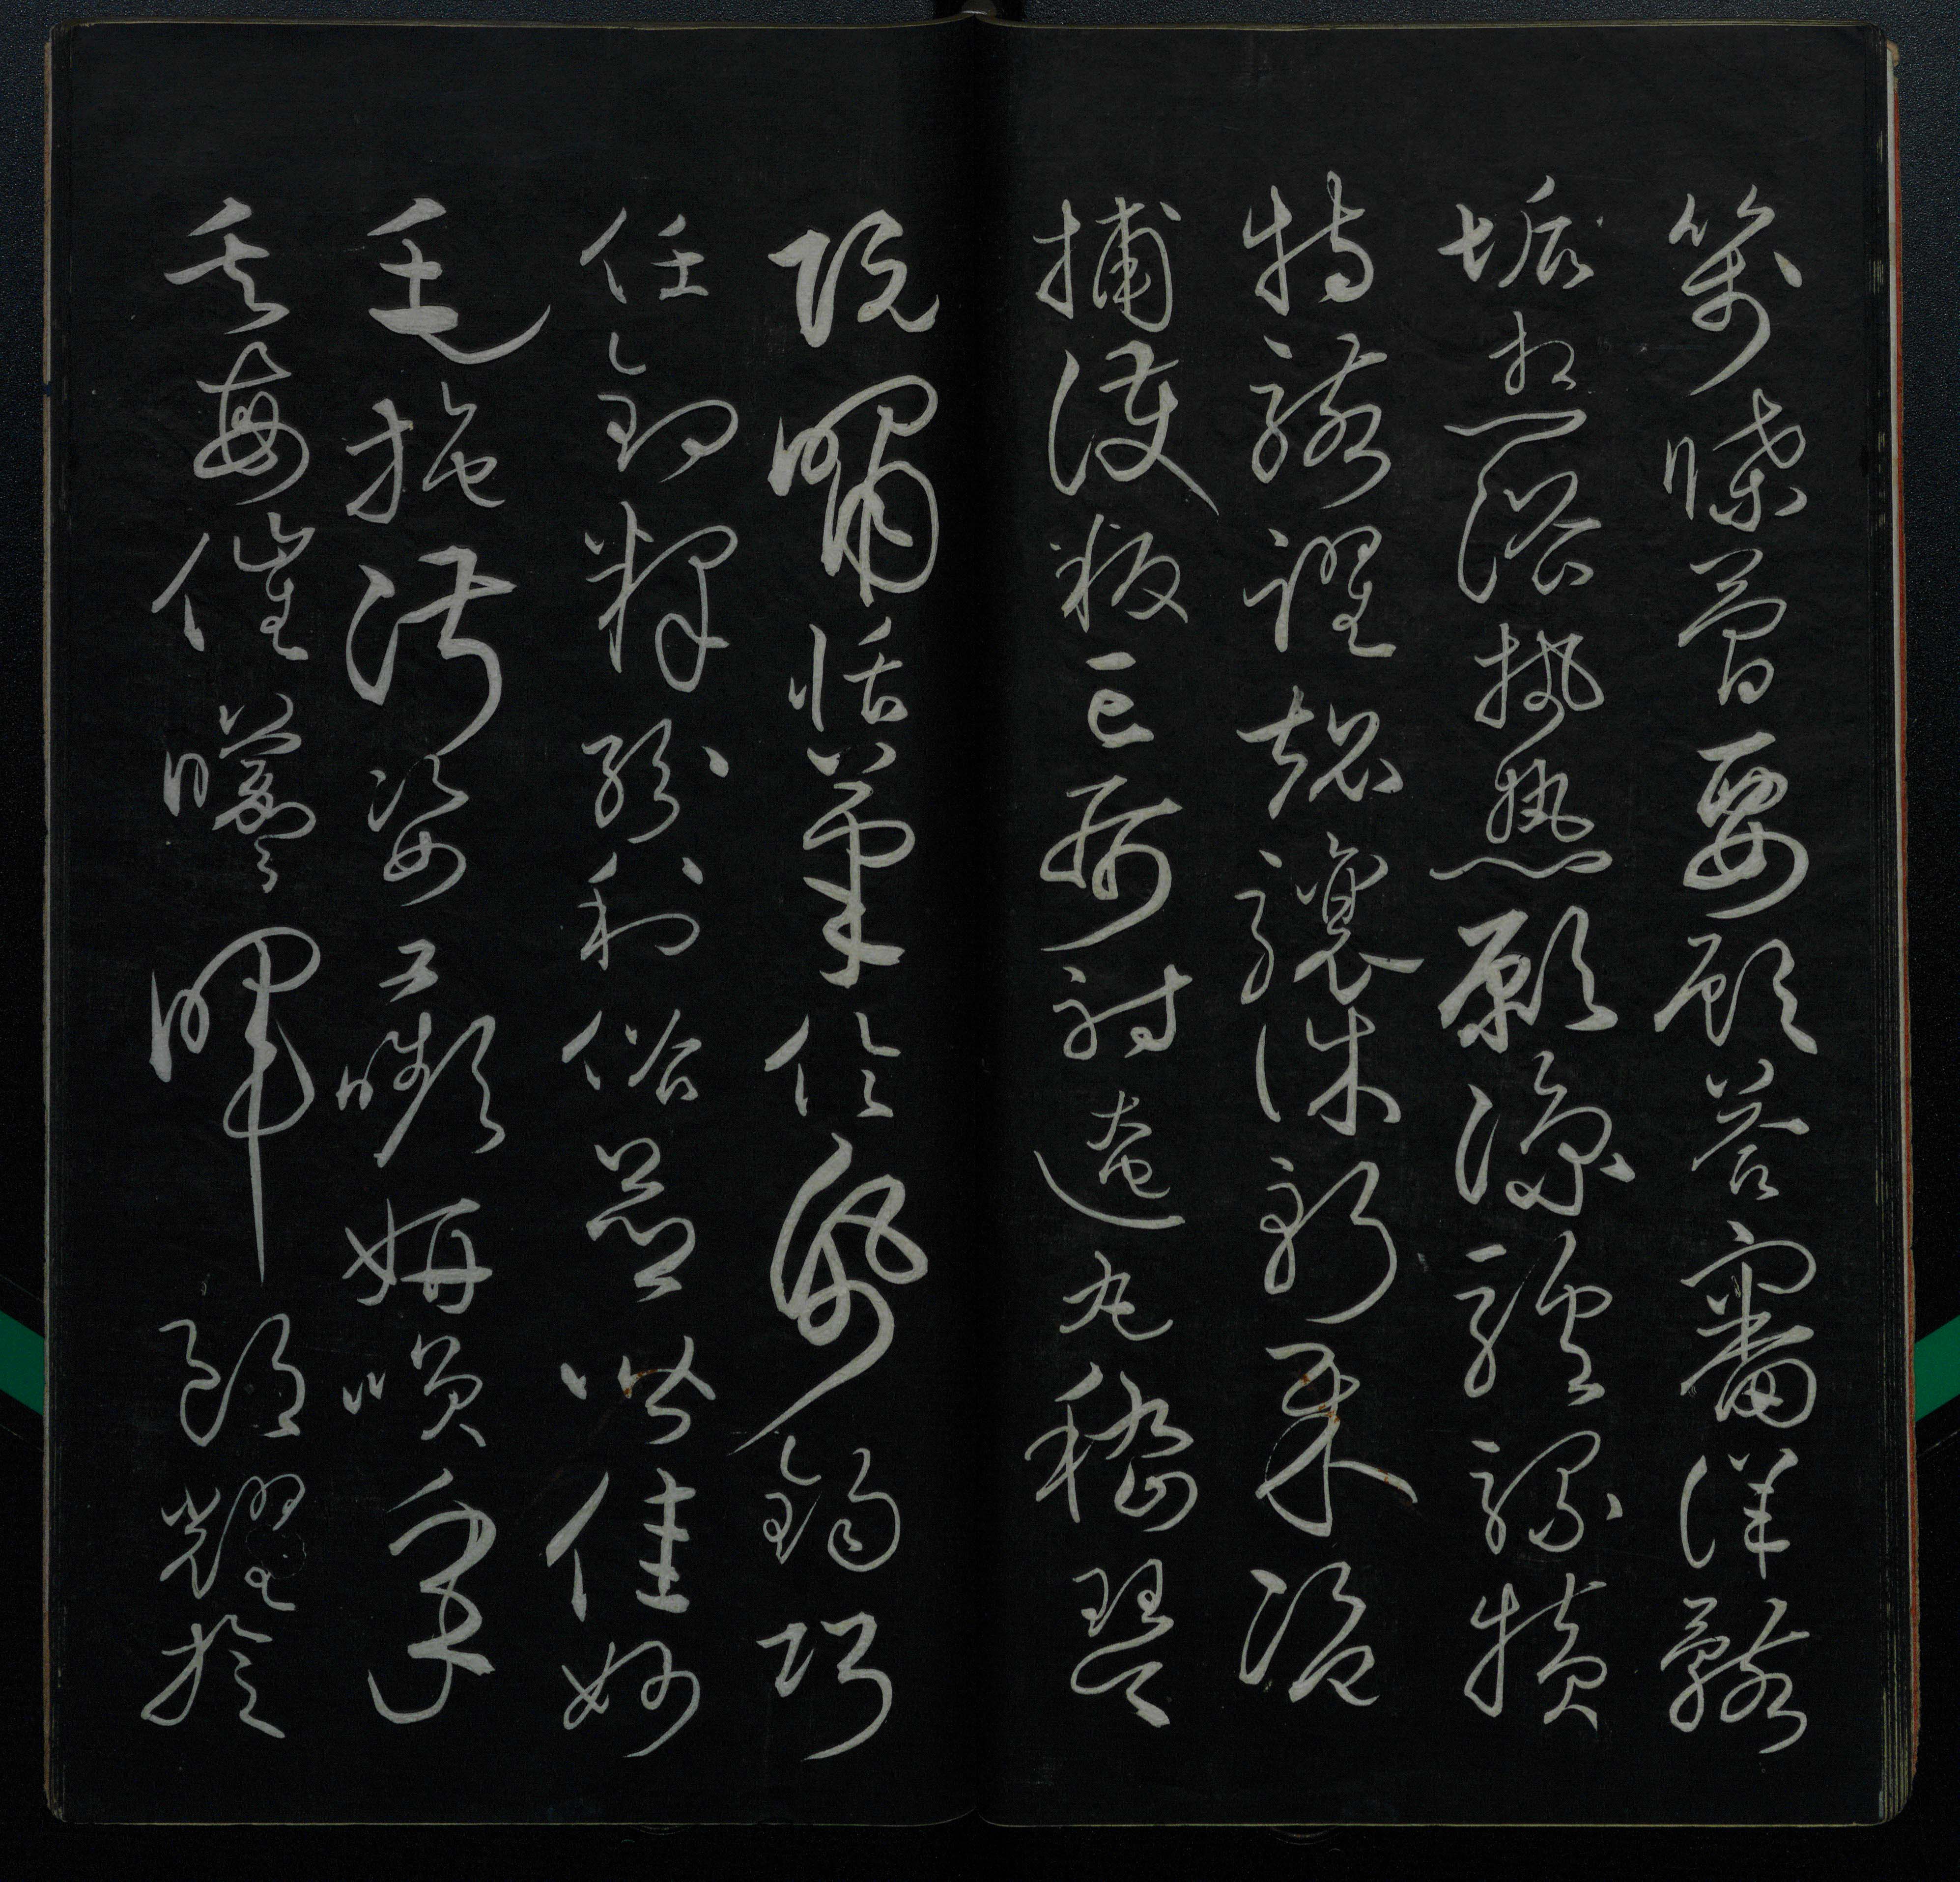 箋牒簡要顧答審詳骸
垢想浴執熱願涼驢騾犢
特駭躍超驤誅斬賊盜
捕獲叛亡布射遼丸嵇琴
阮嘯恬筆倫紙鈞巧
任釣釋紛利俗並皆佳妙
毛施淑姿工嚬妍笑年
矢每催曦暉朗耀旋